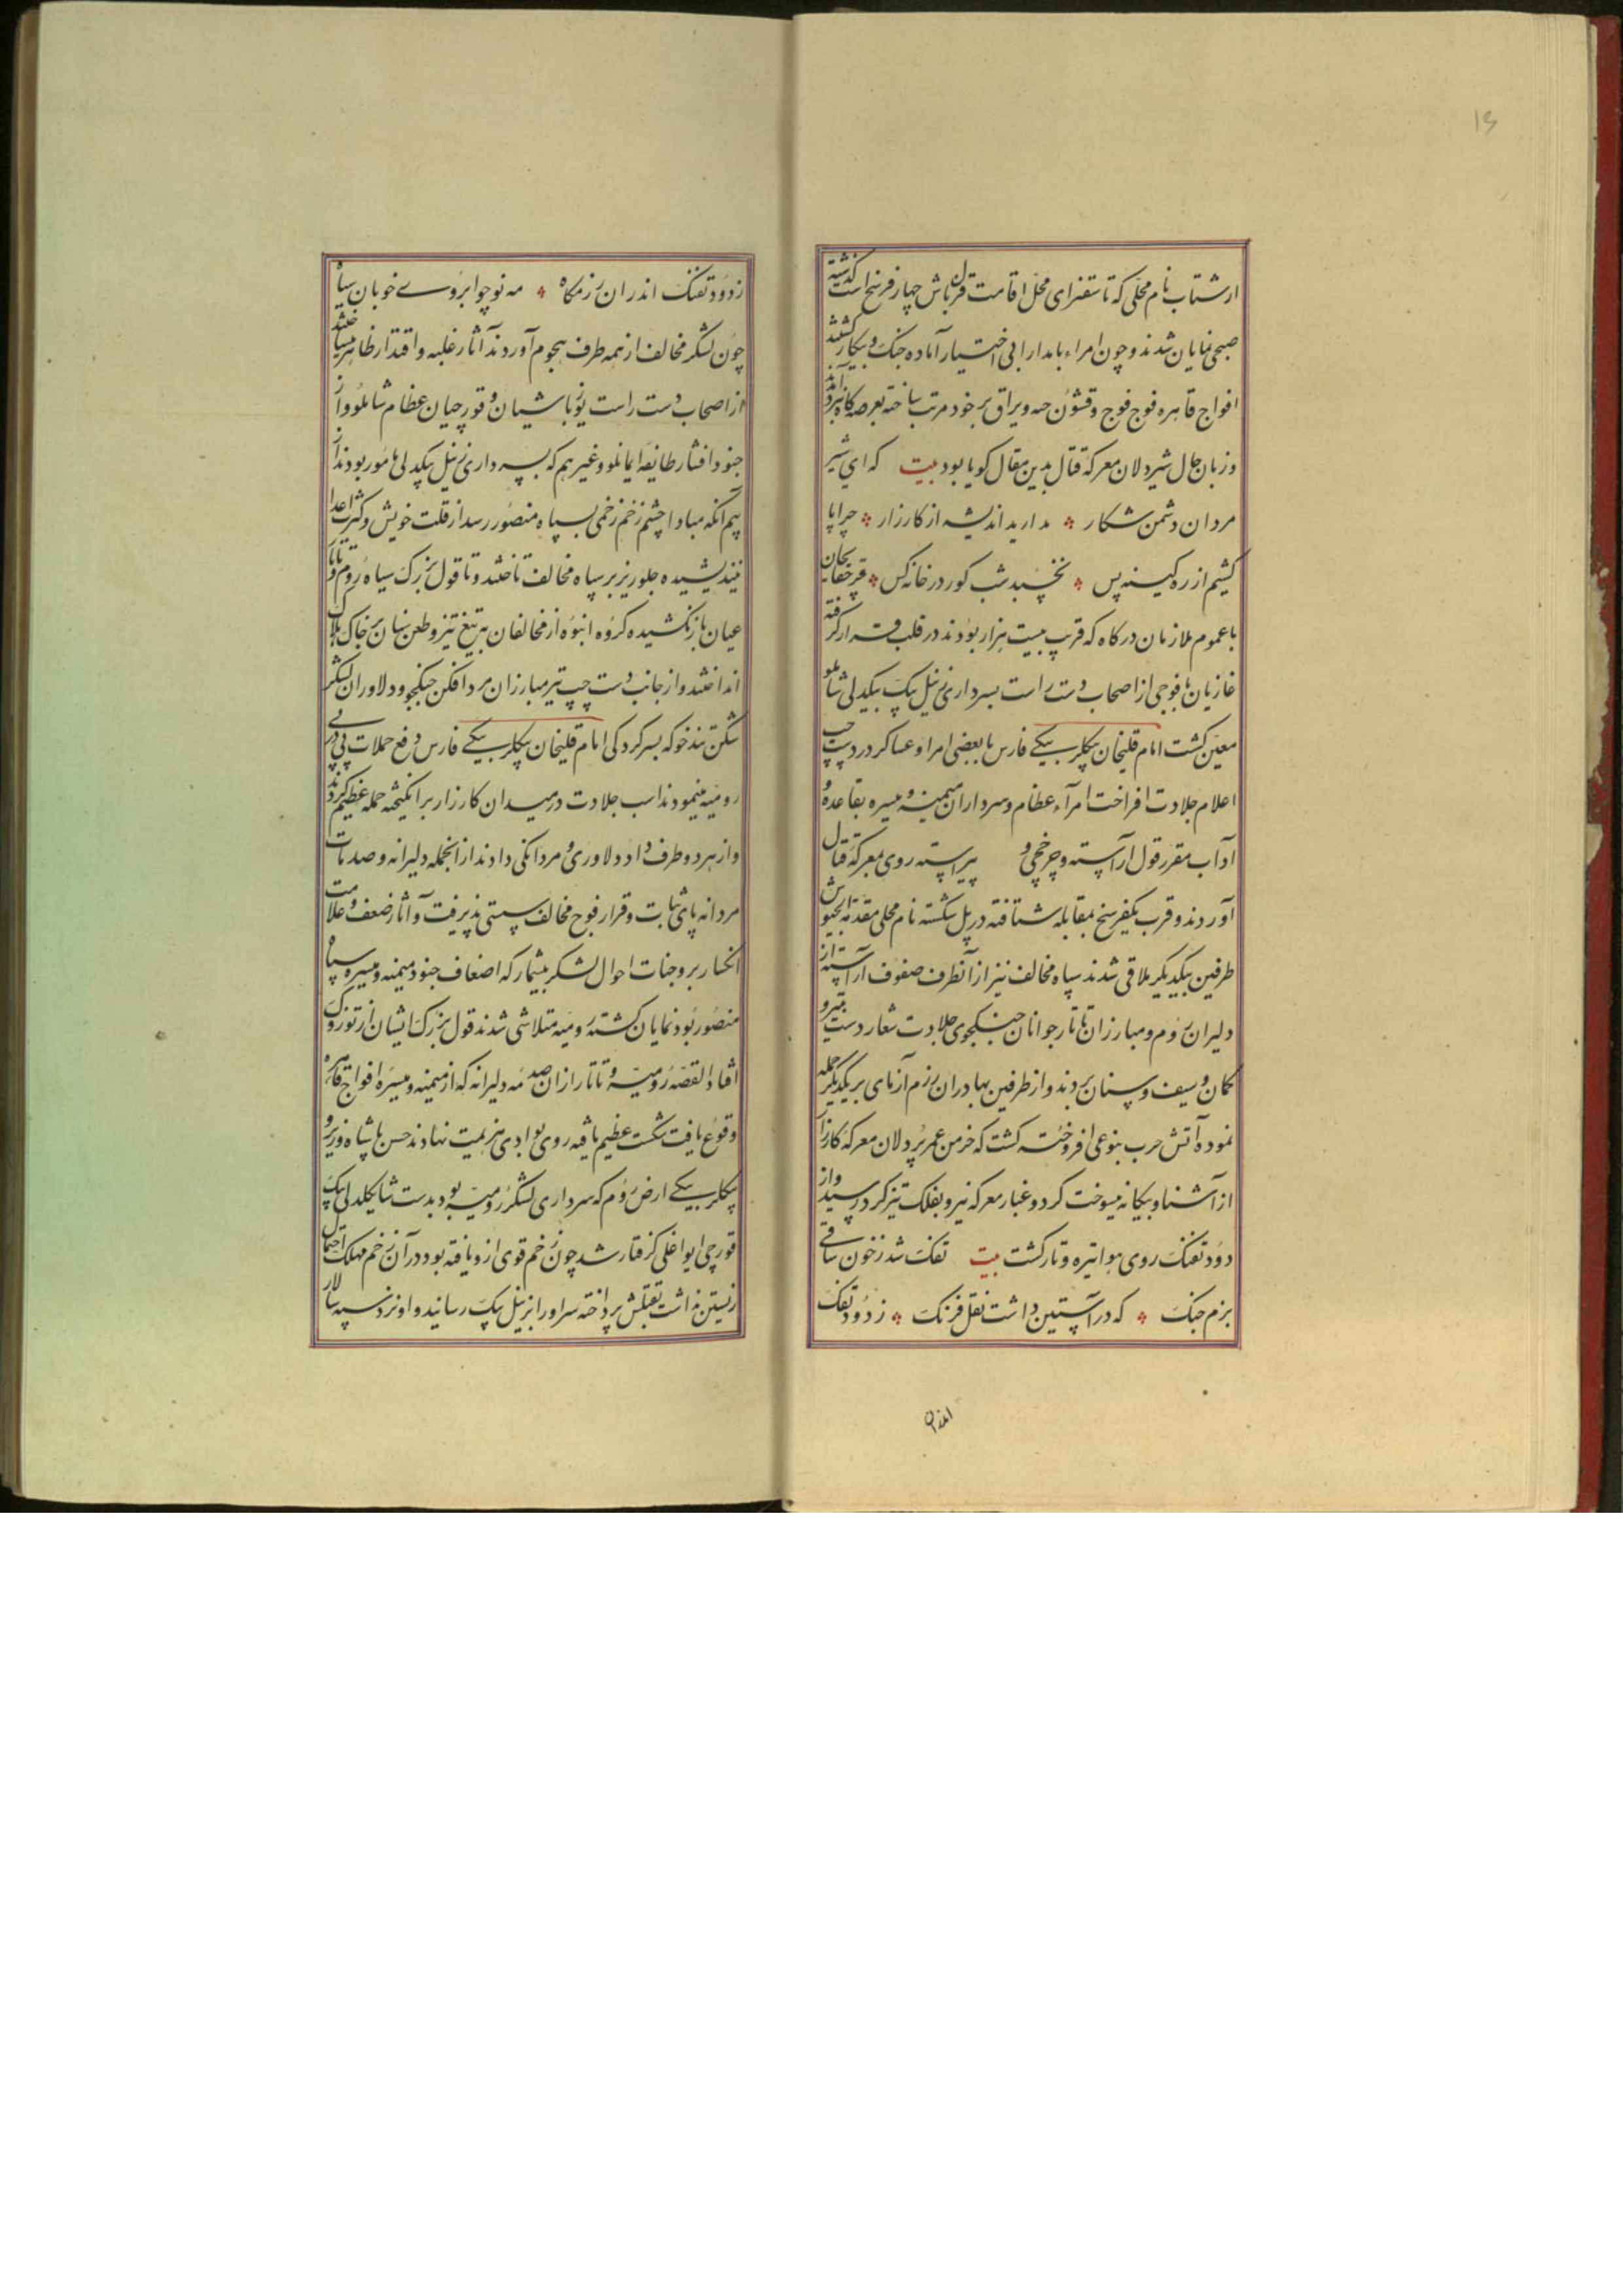 ارشتاب نام محلی که تا سقنرای محل اقامت قزلباش چهار فرسخ است گذشته
صبحی نمایان شدند و چون امراء بامدارا فی اختیار آماده جنک و پیکار کشتند
افواج قاهره فوج فوج و قشون جبه ویراق بر خود مرتب ساخته بعرصه کاه نبرد آمدند
وزبان حال شیردلان معرکه قتال بدین مقال کویا بود بیت که ای شیر
مردان دشمن شکار مدارید اندیشه از کارزار چرا پا
کشیم از ره کینه پس نخسبد شب کور در خانه کس قرچقایخان
با عموم ملازمان درکاه که قریب بیست هزار بودند در قلب قرار کرفته
غازیان با فوجی از اصحاب دست راست بسرداری زینل بیک بیکدلی شاملو
معین کشت امام قلیخان بیکلربیکے فارس با بعضی امرا و عساکر در دست چپ
اعلام جلادت افراخت امرآء عظام و سرداران میمنه و میسره بقاعده و
آداب مقرر قول آراسته و چرخچی و پیراسته روی بمعرکه قتال
آوردند و قرب یکفرسخ بمقابله شتافته در پل شکسته نام محلی مقدمة الجیوش
طرفین بیکدیکر ملاقی شدند سپاه مخالف نیز از آنطرف صفوف آراسته از
دلیران روم و مبارزان تاتار جوانان جنکجوی جلادت شعار دست بتیر و
کمان و سیف و سنان بردند و از طرفین بهادران رزم آزمای بر یکدیکر حمله
نموده آتش حرب بنوعی افروخته کشت که خرمن عمر پردلان معرکه کارزار
از آشنا و بیکانه میسوخت کرد و غبار معرکه نیرو بفلک تیز کرد رسید و از
دود تفنک روی هوا تیره و تار کشت بیت تفنک شد زخون ساقے
بزم جنک که در آستین داشت نقل فرنک ز دود تفنک
اندران
زدود تفنک اندران رزمکاه مه نو چو ابروے خوبان سیاه
چون لشکر مخالف از همه طرف هجوم آوردند آثار غلبه و اقتدار ظاهر میساختند
از اصحاب دست راست یوزباشیان و قورچیان عظام شاملو و از
جنود افشار طایفه ایمانلو و غیرهم که بسرداری زینل بیکدلی مامور بودند از
بیم آنکه مبادا چشم زخم زخمی بسپاه منصور رسد از قلت خویش و کثرت اعدا
نیندیشیده جلوریز بر سپاه مخالف تاختند و تا قول بزرک سپاه روم و تاتار
عنان باز نکشیده کروه انبوه از مخالفان به تیغ تیز و طعن سنان بر خاک هلاک
انداختند و از جانب دست چپ نیز مبارزان مرد افکن جنکجو و دلاوران لشکر
شکن تندخو که بسرکردکی امام قلیخان بیکلربیکے فارس دفع حملات پی در پے
رومیه مینمودند اسب جلادت در میدان کارزار برانکیخته حمله عظیم کردند
و از هر دو طرف داد دلاوری و مردانکی دادند از انجمله دلیرانه و صدمات
مردانه پای ثبات و قرار فوج مخالف سستی پذیرفت و آثار ضعف و علامت
انکسار بر وجنات احوال لشکر بیشمار که اضعاف جنود میمنه و میسره سپاه
منصور بود نمایان کشته رومیه متلاشی شدند قول بزرک ایشان از توزوک
افتاد القصه رومیه و تاتار از ان صدمه دلیرانه که از میمنه و میسره افواج قاهره
وقوع یافت شکست عظیم یافته روی بوادی هزیمت نهادند حسن پاشاه وزیر و
بیکلربیکے ارض روم که سرداری لشکر رومیه بود بدست شاهکلدلی بیک
قورچی ایواغلی کرفتار شد چون زخم قوی از و یافته بود در آن زخم مهلک احتمال
زیستن نداشت بقتلش پرداخته سر او را بزینل بیک رسانید و او نزد سپه سالار